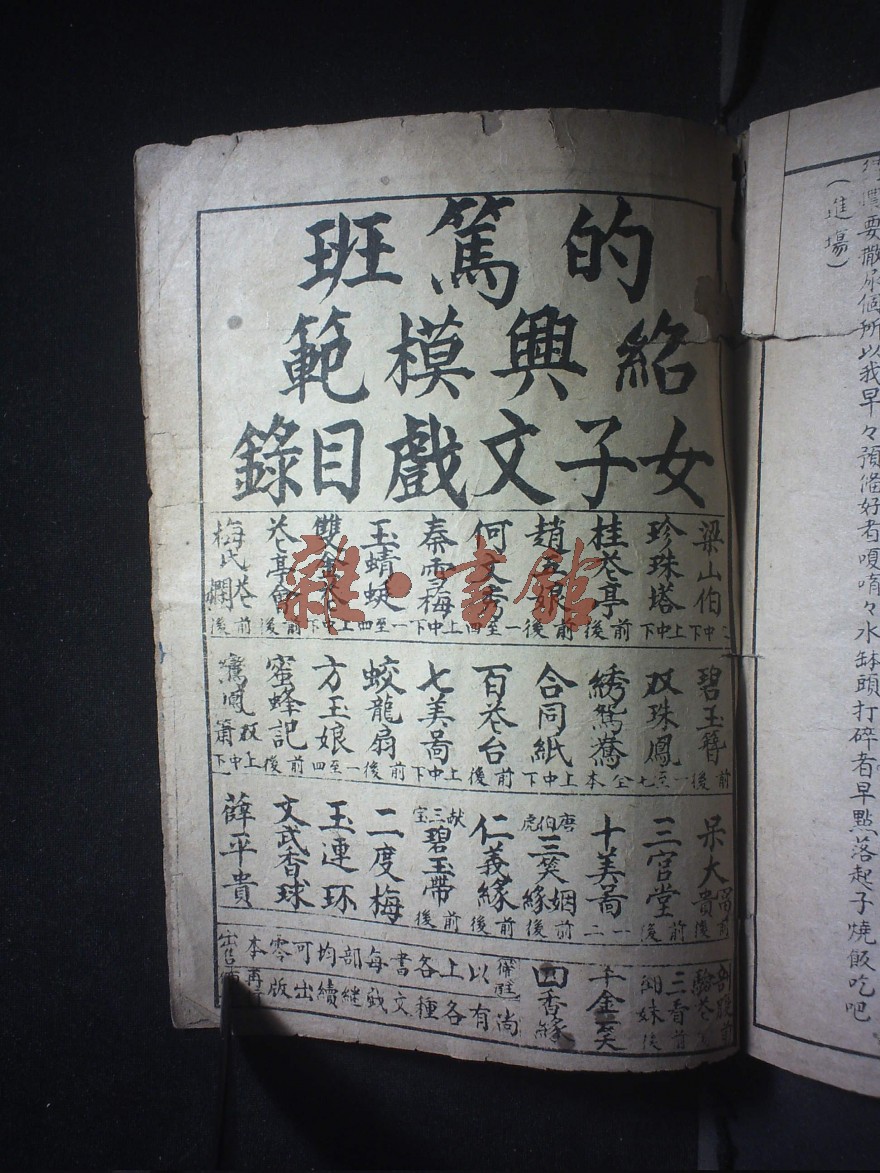 的篤班
紹興模範
女子文戲目錄
梁山伯 一中下
珍珠塔 上中下
桂花亭 前後
趙五娘 前後
何文秀 一至四
秦雪梅 上中下
玉蜻蜓 一至四
雙金花 上中下
花亭會 前後
梅氏花欄 前後
碧玉簪 前後
双珠鳳 一至七
綉鴛鴦 全本
合同紙 上中下
百花台 前後
七美啚 上中下
蛟龍扇 前後
方玉娘 一至四
蜜蜂記 前後
鸞鳳双簫 上中下
呆大富貴 前後
三官堂 前後
十美啚 一二
唐伯虎三笑姻緣 前後
仁義緣 前後
献三宝碧玉帶 前後
二度梅
玉連环
文武香球
薛平貴
三看御妹 前後
千金一笑
四香緣
以上各書每部均可零本出售
尚有各種文戲繼續出版再
雜·書館
要撒尿個所以我早々預俻好者嗄唷々水缽頭打碎者早點落起子燒飯吃吧
(進塲)